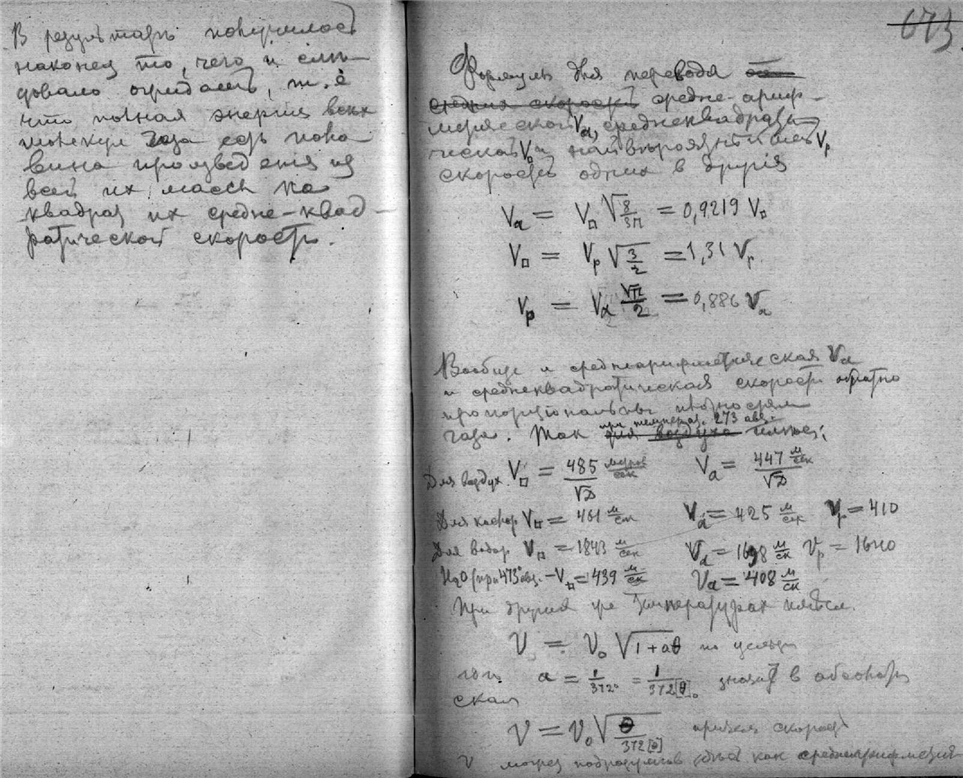 В результате получилось
наконец то, чего и сле-
довало ожидать, т. е
что полная энергия всех
молекул газа есть поло
вина произведения из
всей их массы на
квадрат их средне-квад-
ратической скорости.
673
Формулы для перевода
средния скорости средне-ариф-
метической Vа, среднеквадрати
ческой V□ и наивероятнейшей Vр
скоростей одних в другия
Vа = V□ √8/3π = 0,9219 V□
V□ = Vр √3/2 = 1,31 Vр
Vр = Vа √π/2 = 0,886 Vа
Вообще и среднеарифметическая Vа
и среднеквадратическая скорости обратно
пропорциональны плотностям
при температ. 273 абс.
газа. Так для воздуха имеем:
Для воздух. V□ = 485/√D метров/сек Vа = 447/√D м/сек
Для кислор V□ = 461 м/сек Vа = 425 м/сек Vр = 410
Для водор V□ = 1843 м/сек Vа = 1698 м/ск Vр = 1640
H₂O (при 473° абс. - V□ = 439 м/ск Vа = 408 м/ск
При других же температурах имеем.
V = V₀ √1+aθ
a = 1/372° = 1/372[θ]₀ значит в абсолют
ская
V = V₀ √θ/372[θ] скорост
V может быть как среднеарифметич